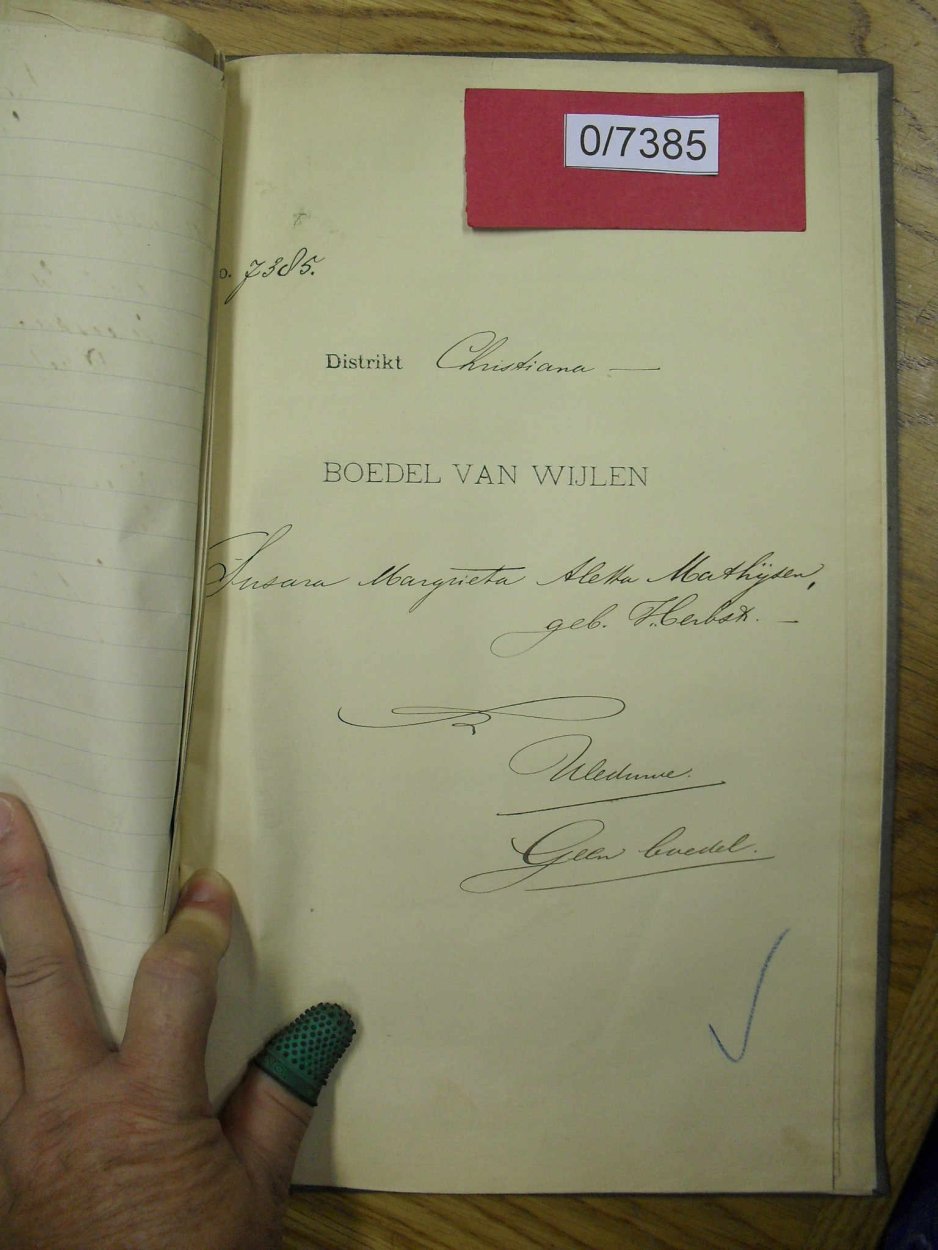 0/7385
o. 7385.
Distrikt Christiana —
BOEDEL VAN WIJLEN
Susara Margrieta Aletta Mathijsen,
geb. Herbst. —
Weduwe.
Geen boedel.